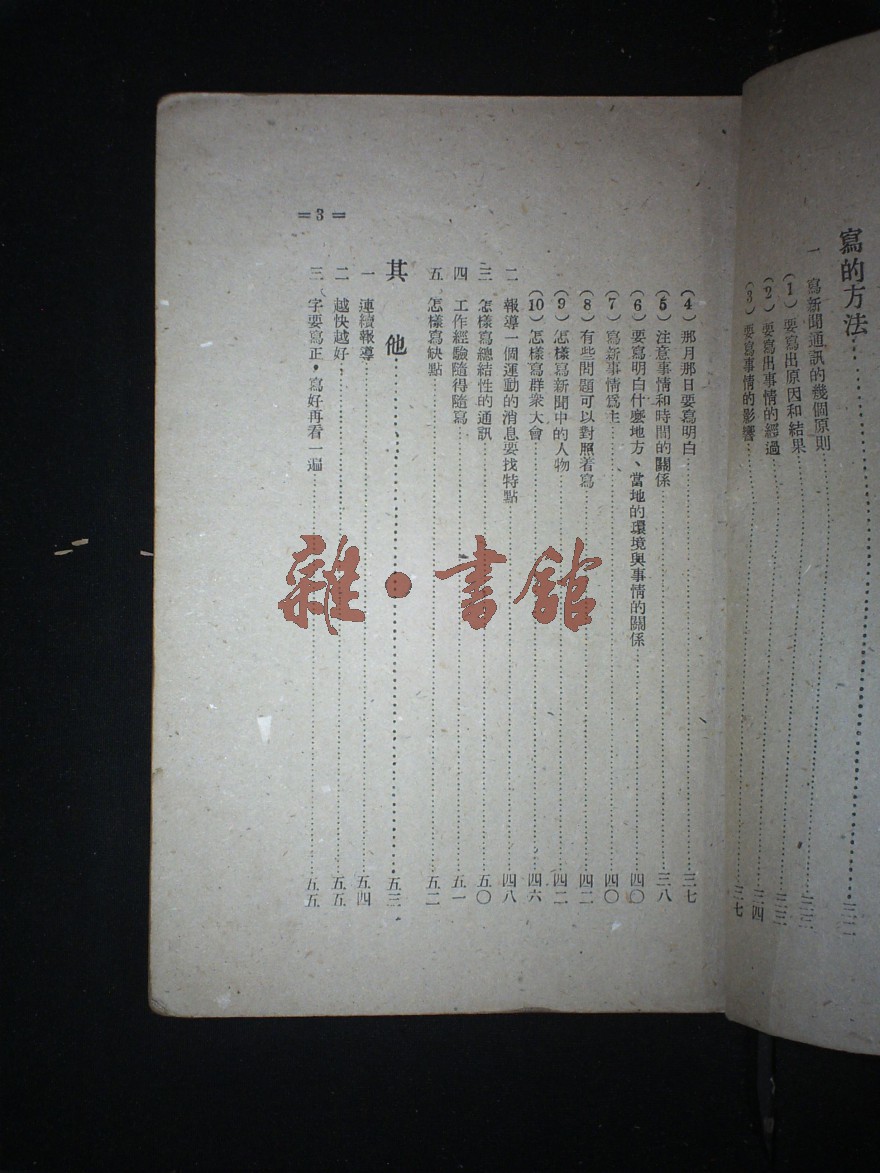 寫的方法……三二
一 寫新聞通訊的幾個原則……三三
(1) 要寫出原因和結果……三三
(2) 要寫出事情的經過……三四
(3) 要寫事情的影響……三七
(4) 那月那日要寫明白……三七
(5) 注意事情和時間的關係……三八
(6) 要寫明白什麼地方、當地的環境與事情的關係……四〇
(7) 寫新事情爲主……四〇
(8) 有些問題可以對照着寫……四二
(9) 怎樣寫新聞中的人物……四二
(10) 怎樣寫群衆大會……四六
二 報導一個運動的消息要找特點……四八
三 怎樣寫總結性的通訊……五〇
四 工作經驗隨得隨寫……五一
五 怎樣寫缺點……五二
其 他……五三
一 連續報導……五四
二 越快越好……五五
三 字要寫正，寫好再看一遍……五五
=3=
雜·書館